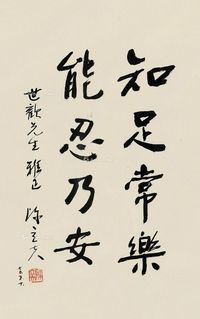 知足常樂
能忍乃安
世歡先生雅正
陳立夫